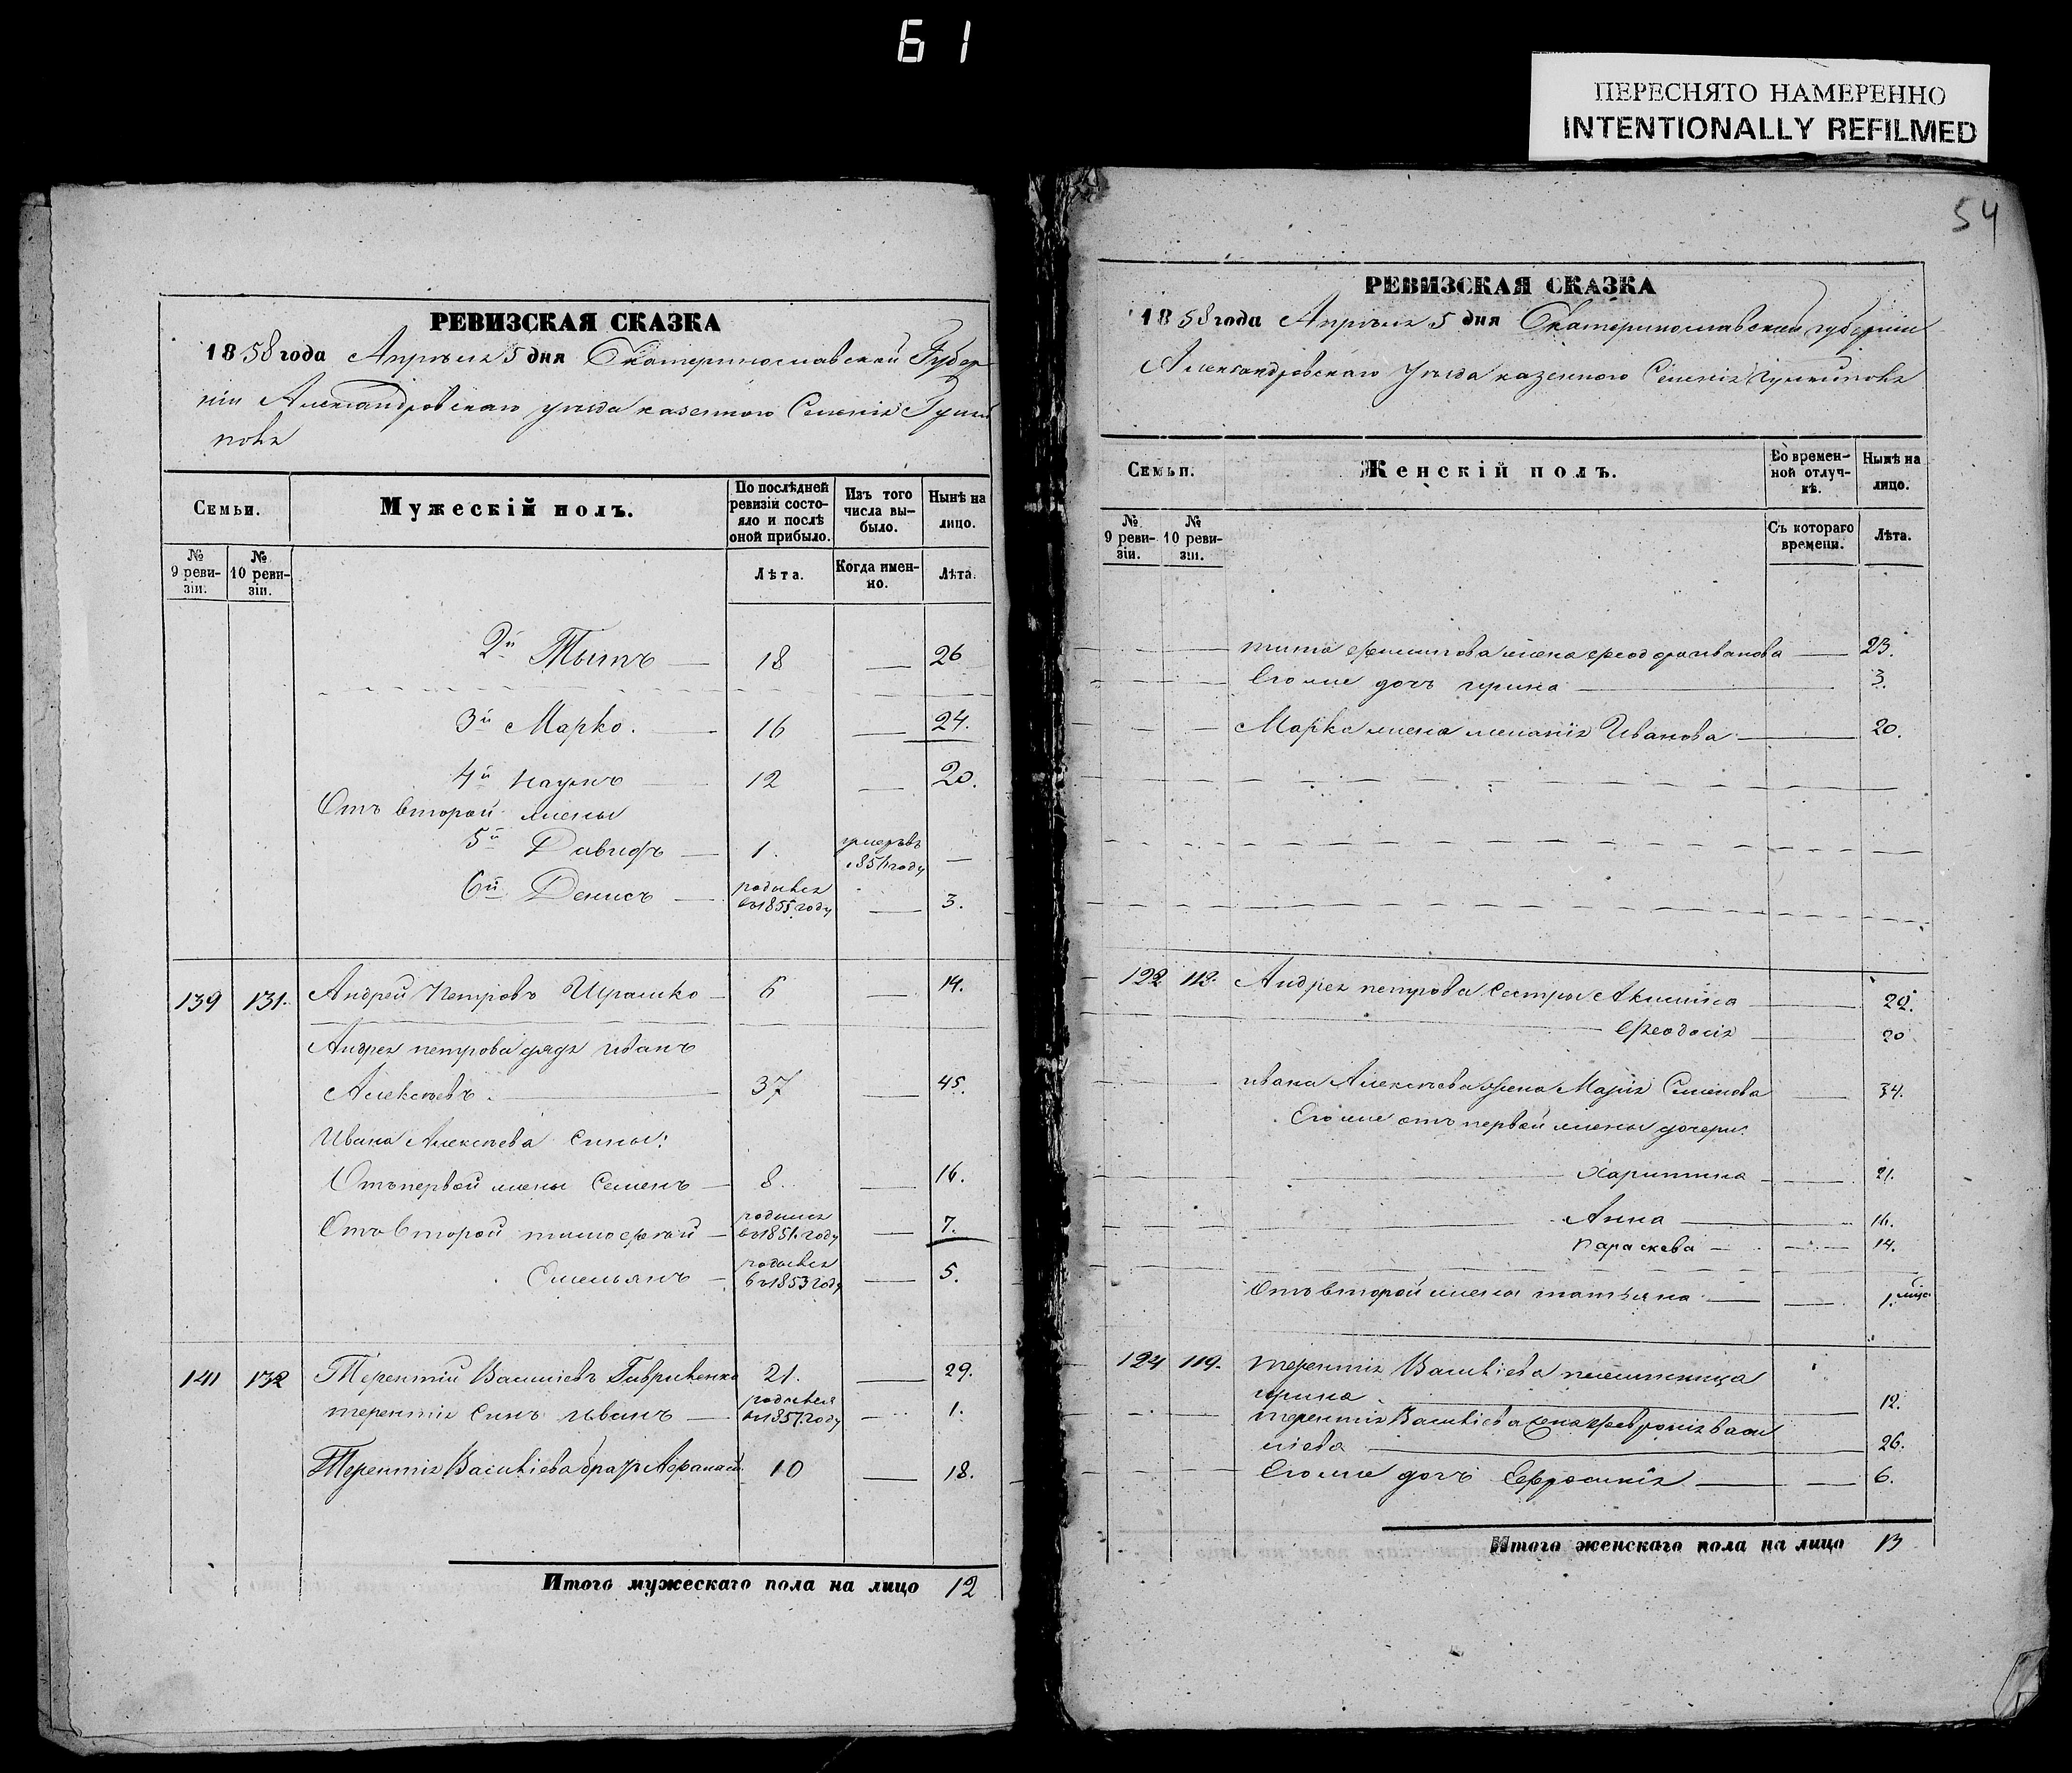 61
ПЕРЕСНЯТО НАМЕРЕННО
INTENTIONALLY REFILMED
РЕВИЗСКАЯ СКАЗКА
1858 года Апрѣля 5 дня Екатеринославской Губер
ніи Александровскаго уѣзда казенного Селенія
Семьи.
Мужескій полъ.
По послѣдней ревизіи состояло и послѣ оной прибыло.
Изъ того числа выбыло.
Нынѣ на лицо.
№ 9 ревизіи.
№ 10 ревизіи.
Лѣта.
Когда именно.
Лѣта.
2й Тытъ 18 — 26
3й Марко. 16 — 24.
4й Наумъ 12 — 20.
Отъ второй жены
5й Давидъ 1. умеръ въ 1851 году —
6й Денисъ родывся въ 1855 году — 3.
139 131. Андрей Петровъ Шрамко 6 — 14.
Андрея петрова дядя иванъ
Алексѣевъ. 37 — 45.
Ивана Алексѣева Сины:
Отъ первой жены Семенъ 8. — 16.
Отъ второй тимофѣй родывся въ 1851 году — 7.
Емельянъ родывся въ 1853 году — 5.
141 132 Терентій Василіевъ Гавриленко 21. — 29.
терентія Синъ иванъ родывся въ 1857 году — 1.
Терентія Василіева братъ Афанасій 10 — 18.
Итого мужескаго пола на лицо 12
54
РЕВИЗСКАЯ СКАЗКА
1858 года Апрѣля 5 дня Екатеринославской губерніи
Александровскаго Уѣзда казенного Селенія
Семьи.
Женскій полъ.
Во временной отлучкѣ.
Нынѣ на лицо.
№ 9 ревизіи.
№ 10 ревизіи.
Съ котораго времени.
Лѣта.
тита филипова жена феодора иванова 23.
Его же дочь ирина 3.
Марка жена меланія Иванова 20.
122 112. Андрея петрова Сестры Акилина 22.
Феодосія 20
ивана Алексѣева жена Марія Семенова 34.
Его же отъ первой жены дочери:
Харитина 21.
Анна 16.
Параскева 14.
Отъ второй жены татьяна 1.
124 119. терентія Василіева племяница
ирина 12.
терентія Василіева жена Февронія васи
лиева 26.
Его же дочь Ефросинія 6.
Итого женскаго пола на лицо 13